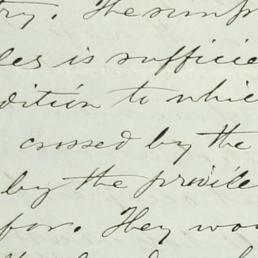 try. The simp
les is sufficie
dition to whic
crossed by the
by the privile
for. They wou